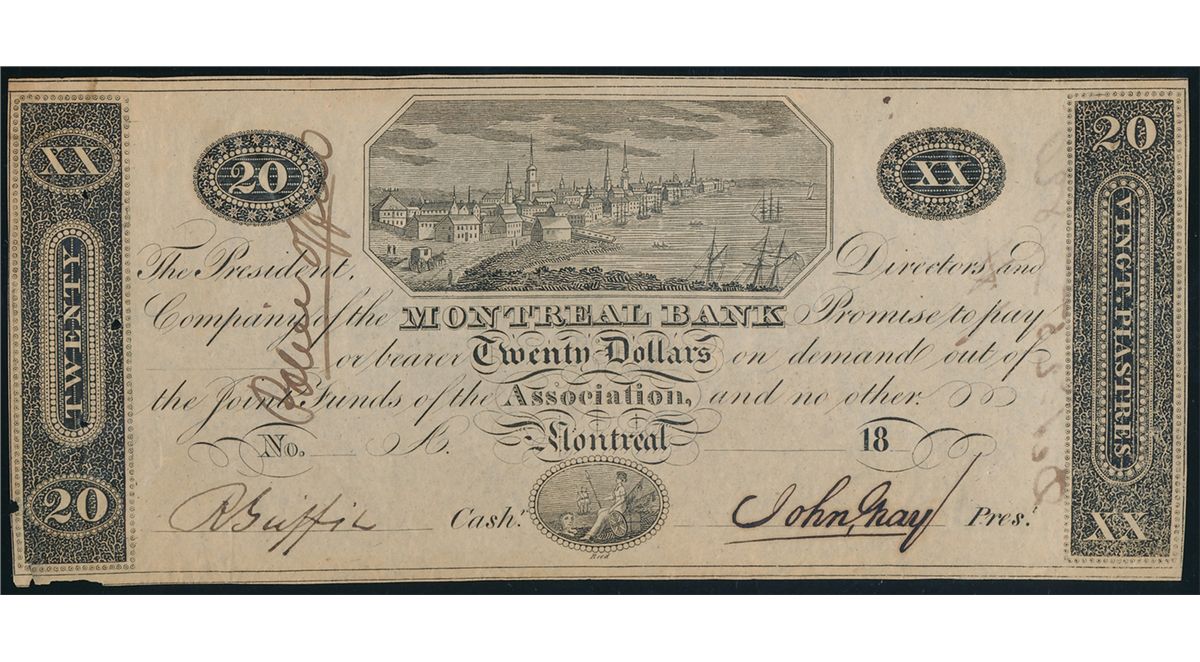 XX
TWENTY
20
20
XX
20
VINGT PIASTRES
XX
The President, Directors and
Company of the MONTREAL BANK Promise to pay
or bearer Twenty Dollars on demand out of
the Joint Funds of the Association, and no other.
No. A. Montreal 18
R Griffin Cash.r John Gray Pres.t
Reed